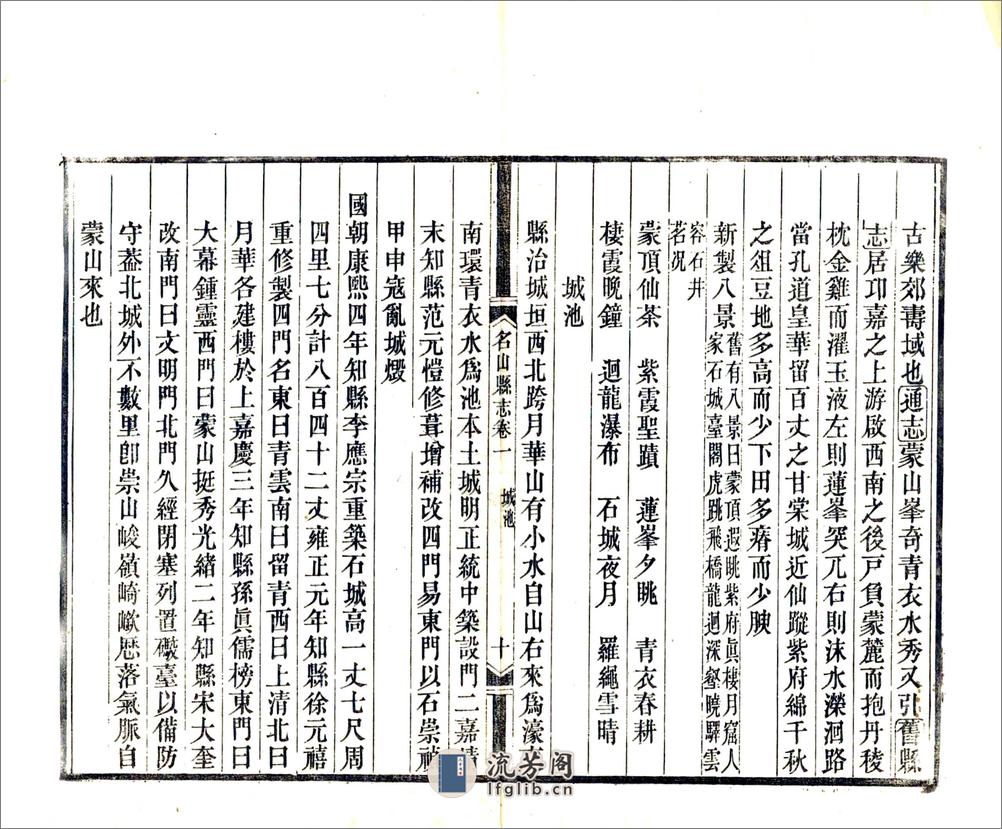 古樂郊壽域也通志蒙山峯奇青衣水秀又引舊縣
志居邛嘉之上游啟西南之後戸負蒙麓而抱丹稜
枕金雞而濯玉液左則蓮峯突兀右則沬水瀠洄路
當孔道皇華留百丈之甘棠城近仙蹤紫府綿千秋
之俎豆地多高而少下田多瘠而少腴
新製八景舊有八景曰蒙頂遐眺紫府眞棲月窟人
家石城臺閣虎跳飛橋龍迴深壑曉驛雲
容石井
茗況
蒙頂仙茶 紫霞聖蹟 蓮峯夕眺 青衣春耕
棲霞晚鐘 迴龍瀑布 石城夜月 羅繩雪晴
城池
縣治城垣西北跨月華山有小水自山右來爲濠東
名山縣志卷一 城池 十
南環青衣水爲池本土城明正統中築設門二嘉靖
末知縣范元愷修葺增補改四門易東門以石崇禎
甲申寇亂城燬
國朝康熙四年知縣李應宗重築石城高一丈七尺周
四里七分計八百四十二丈雍正元年知縣徐元禧
重修製四門名東曰青雲南曰留青西曰上清北曰
月華各建樓於上嘉慶三年知縣孫眞儒榜東門曰
大幕鍾靈西門曰蒙山挺秀光緒二年知縣宋大奎
改南門曰文明門北門久經閉塞列置礮臺以備防
守葢北城外不數里卽崇山峻嶺崎嶔厯落氣脈自
蒙山來也
流芳阁
lfglib.cn